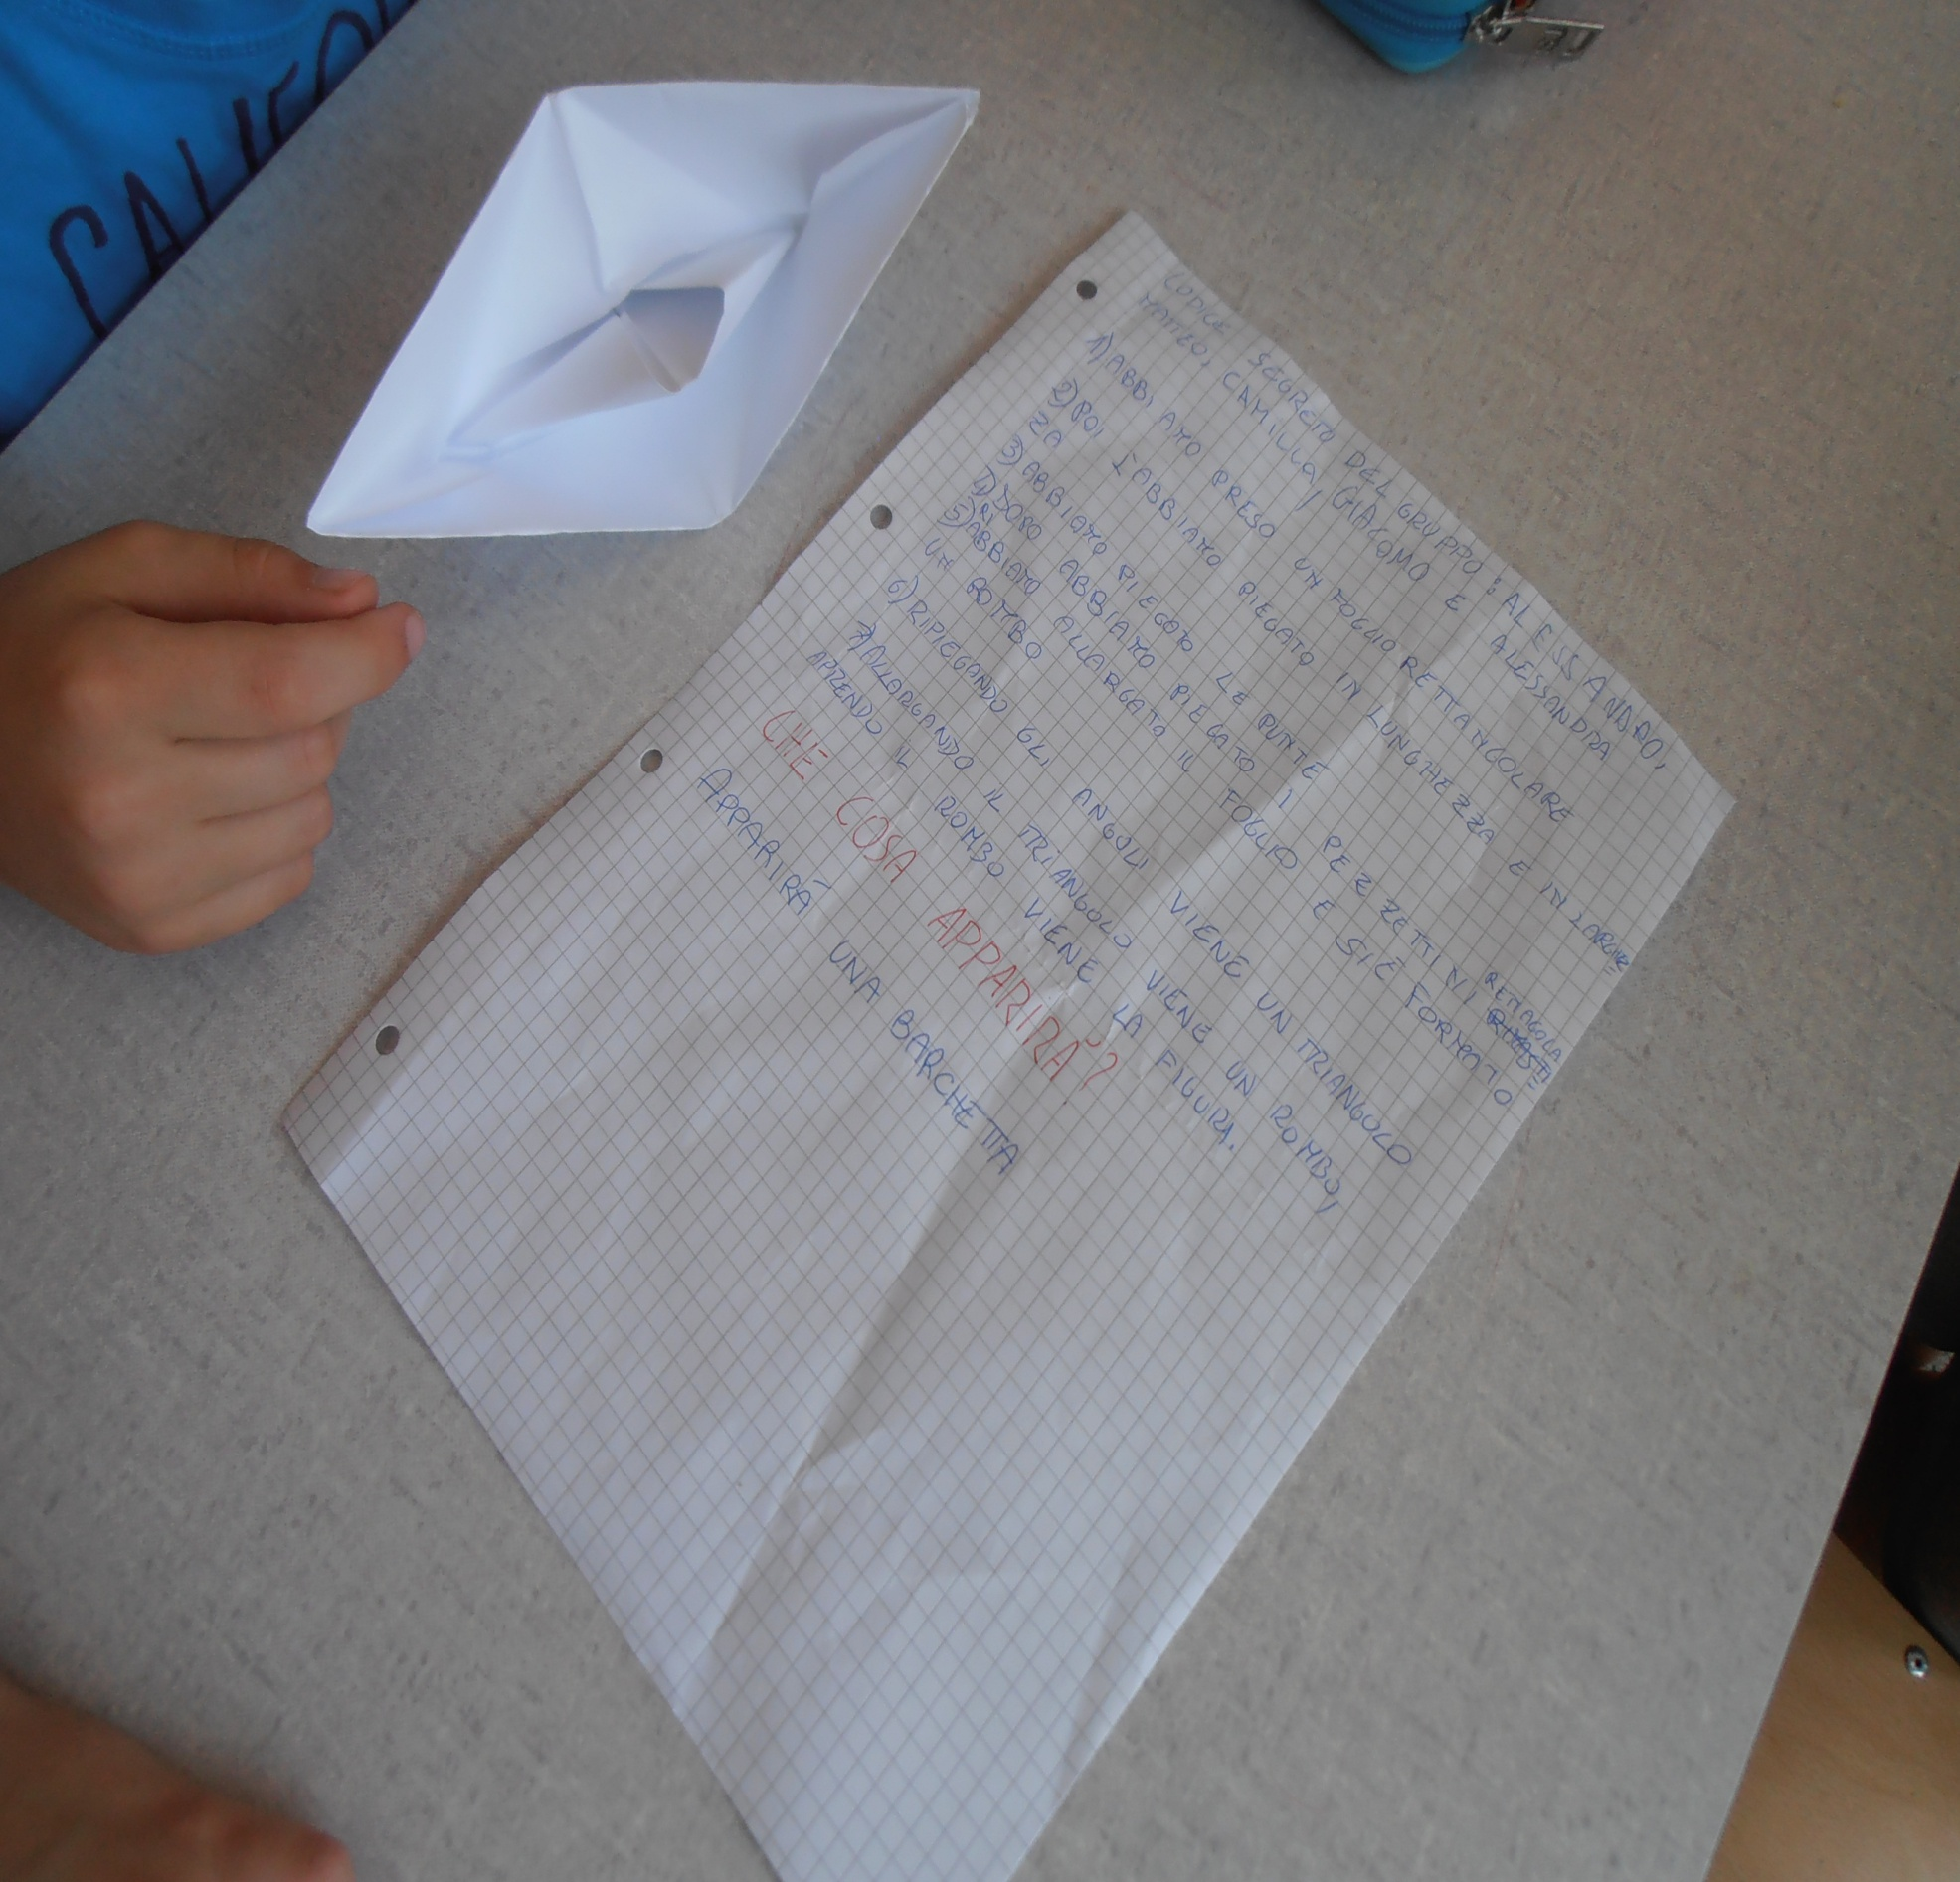 CALIFO
CODICE SEGRETO DEL GRUPPO: ALESSANDRO,
MATTEO, CAMILLA, GIACOMO E ALESSANDRA
1) ABBIAMO PRESO UN FOGLIO RETTANGOLARE
2) POI L'ABBIAMO PIEGATO IN LUNGHEZZA E IN LARGHEZ
ZA
3) ABBIAMO PIEGATO LE PUNTE
4) DOPO ABBIAMO PIEGATO I PEZZETTINI RETTAGOLA
RI
5) ABBIAMO ALLARGATO IL FOGLIO E SI È FORMATO
UN ROMBO
6) RIPIEGANDO GLI ANGOLI VIENE UN TRIANGOLO
7) ALLARGANDO IL TRIANGOLO VIENE UN ROMBO,
APRENDO IL ROMBO VIENE LA FIGURA.
CHE COSA APPARIRÀ?
APPARIRÀ UNA BARCHETTA